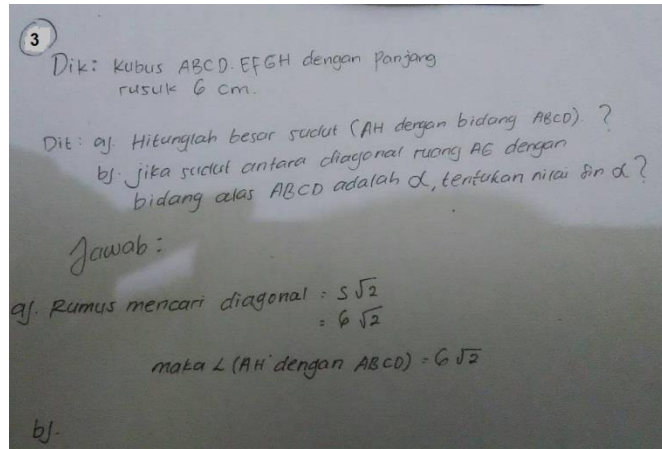 3
Dik: Kubus ABCD.EFGH dengan panjang
rusuk 6 cm.
Dit: a). Hitunglah besar sudut (AH dengan bidang ABCD). ?
b). jika sudut antara diagonal ruang AG dengan
bidang alas ABCD adalah α, tentukan nilai sin α?
Jawab:
a). Rumus mencari diagonal = S√2
= 6√2
maka ∠ (AH dengan ABCD) = 6√2
b).